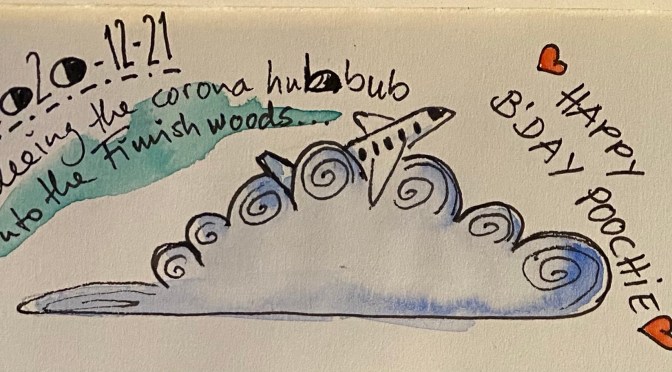 020-12-21
the corona hubbub
the Finnish woods...
HAPPY
B'DAY POOCHIE